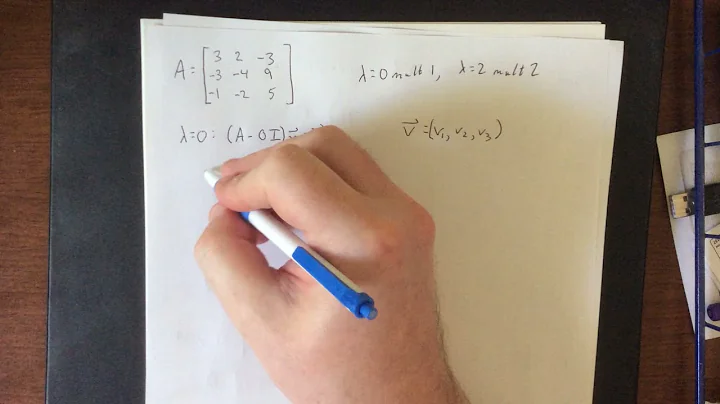 A = [3 2 -3
-3 -4 9
-1 -2 5]
λ=0 mult 1, λ=2 mult 2
λ=0: (A-0I)v⃗
v⃗=(v₁, v₂, v₃)